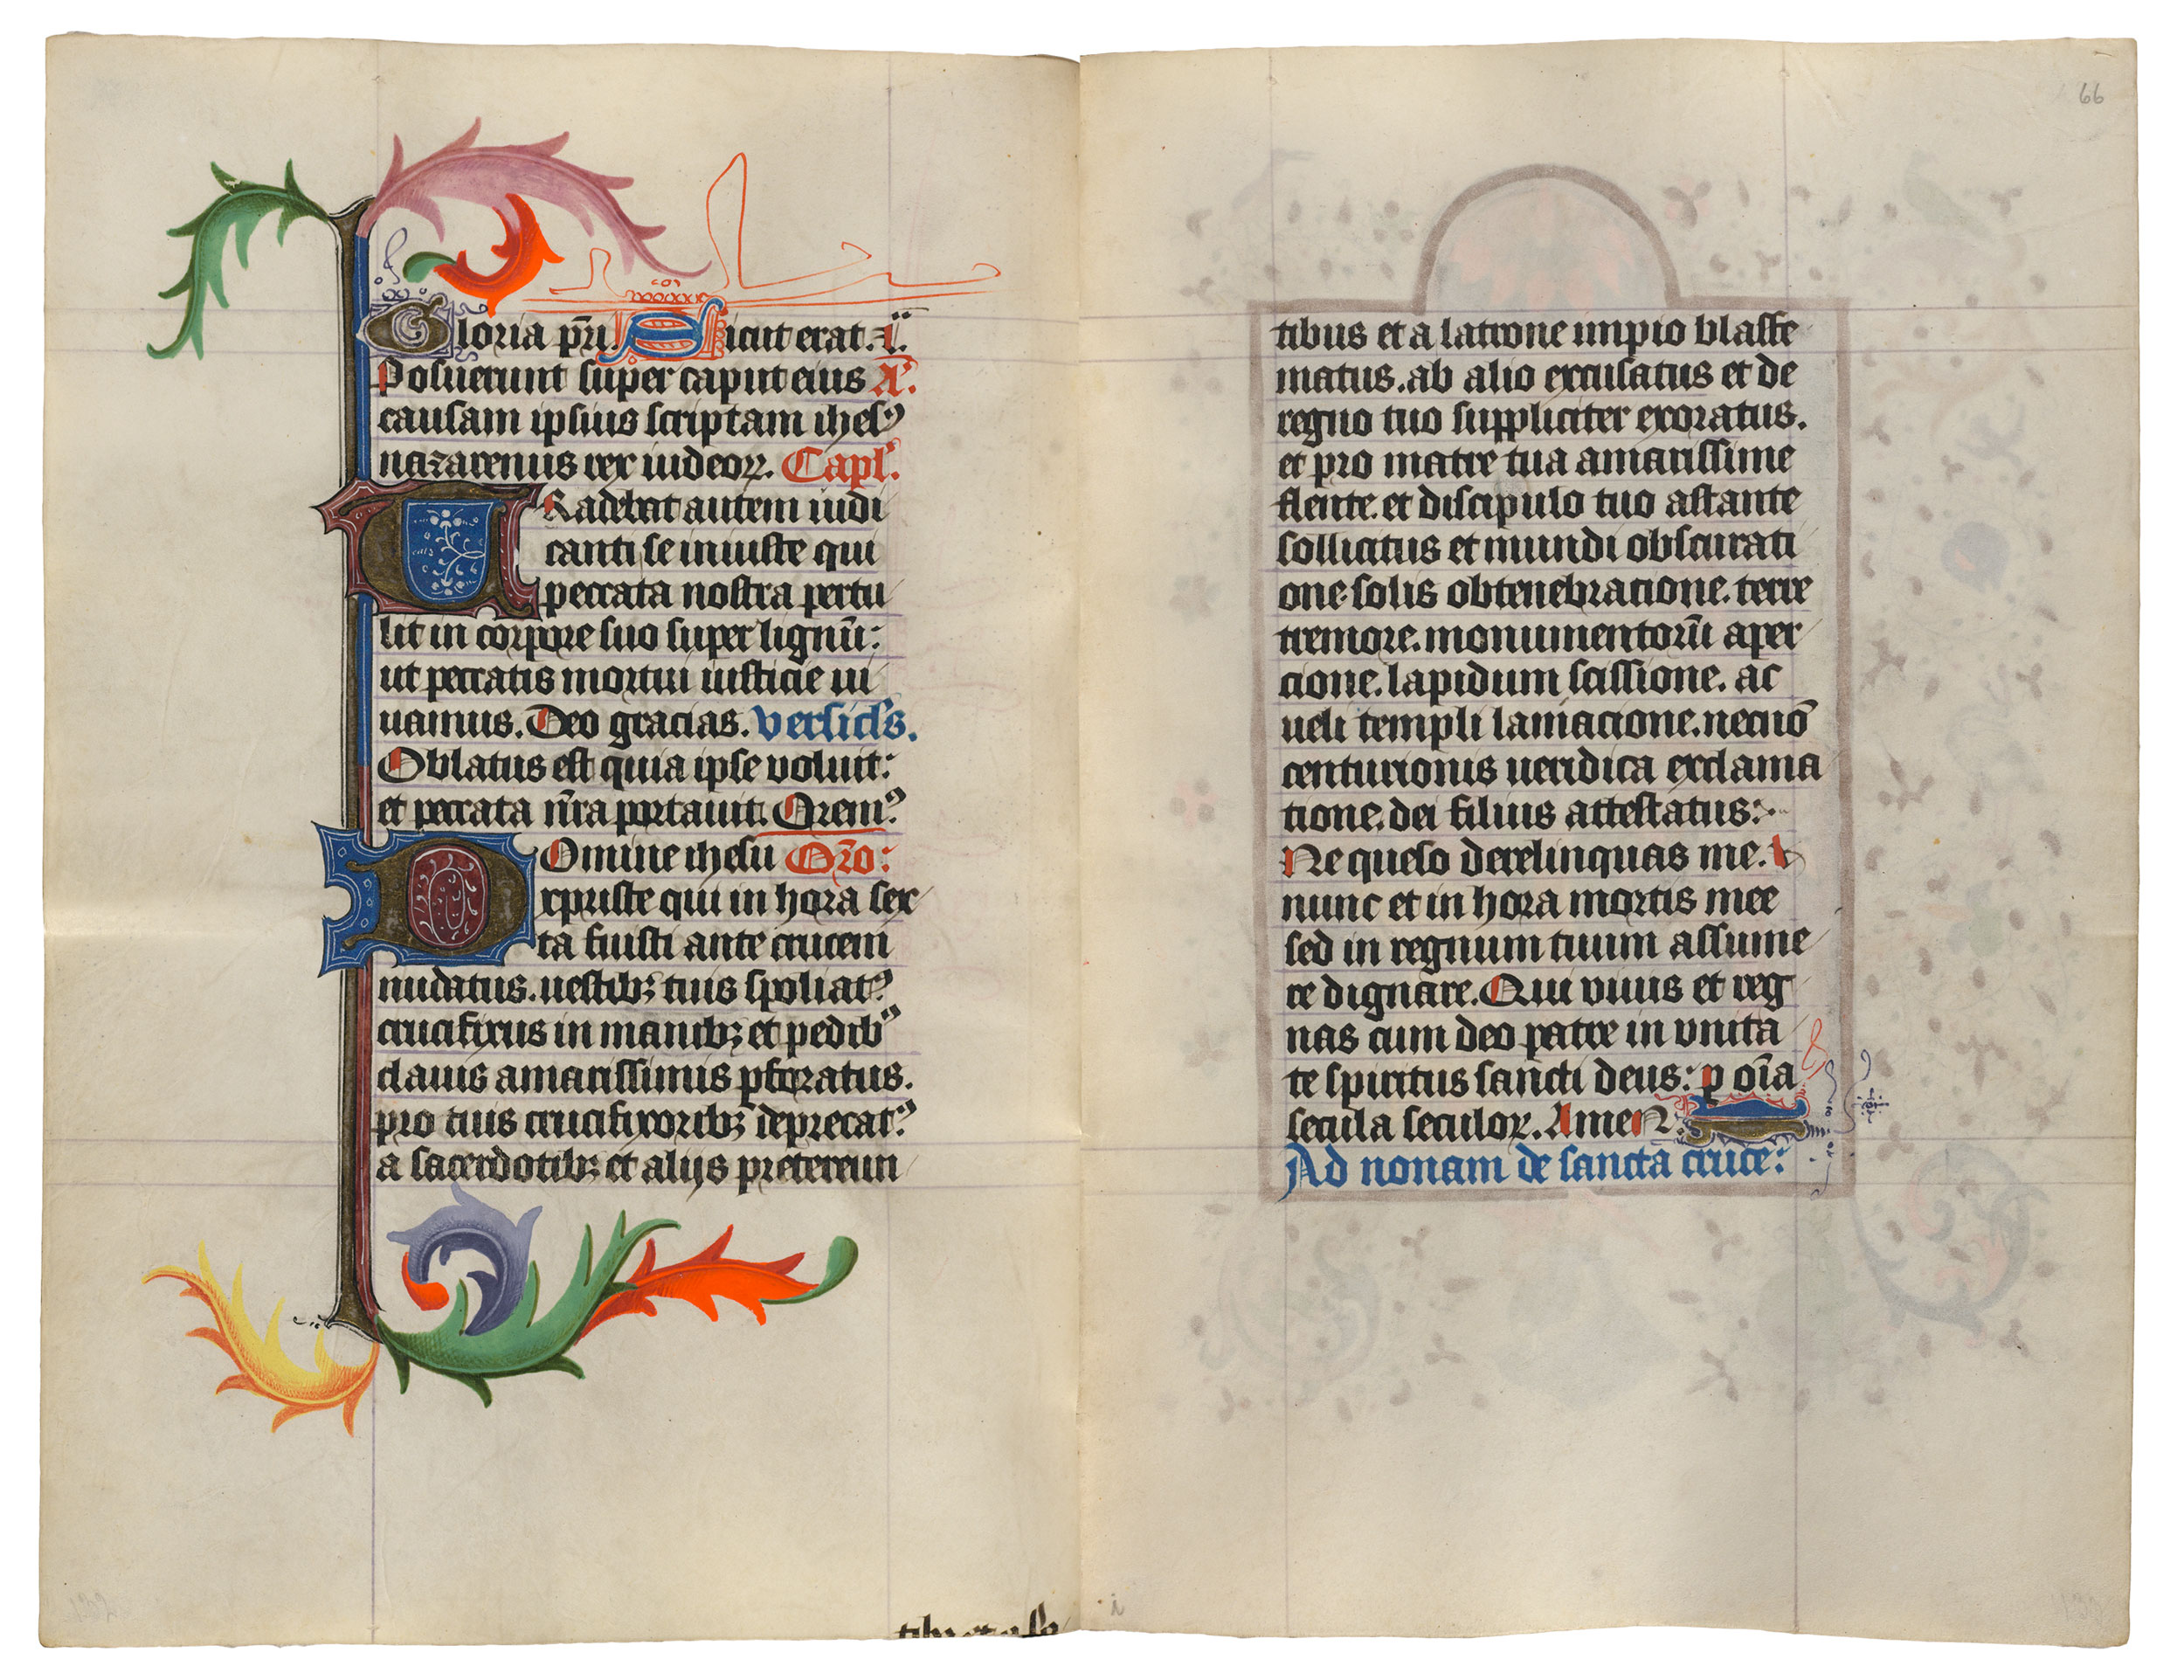 Gloria pr̄i. Sicut erat. A.
Posuerunt super caput eius A.
causam ipsius scriptam ihes⁹
nazarenus rex iudeoꝝ. Capl'.
TRadebat autem iudi
canti se iniuste qui
peccata nostra pertu
lit in corpore suo super lignū:
ut peccatis mortui iusticie ui
uamus. Deo gracias. versicl's.
Oblatus est quia ipse voluit:
et peccata nr̄a portauit. Orem⁹
DOmine ihesu Or̄o:
xpriste qui in hora sex
ta fuisti ante crucem
nudatus. uestibꝫ tuis spoliat⁹
crucifixus in manibꝫ et pedib⁹
clauis amarissimis ꝑforatus.
pro tuis crucifixoribꝫ deprecat⁹
a sacerdotibꝫ et alijs pretereun
66
tibus et a latrone impio blasfe
matus. ab alio excusatus et de
regno tuo suppliciter exoratus.
et pro matre tua amarissime
flente. et discipulo tuo astante
sollicitus et mundi obscurati
one solis obtenebratione. terre
tremore. monumentorū aper
cione. lapidum scissione. ac
ueli templi laniacione. necnō
centurionis ueridica exclama
tione. dei filius attestatus:
Ne queso derelinquas me.
nunc et in hora mortis mee
sed in regnum tuum assume
re dignare. Qui viuis et reg
nas cum deo patre in vnita
te spiritus sancti deus: ꝑ oīa
secula seculoꝝ. AmeN.
Ad nonam de sancta cruce:
i